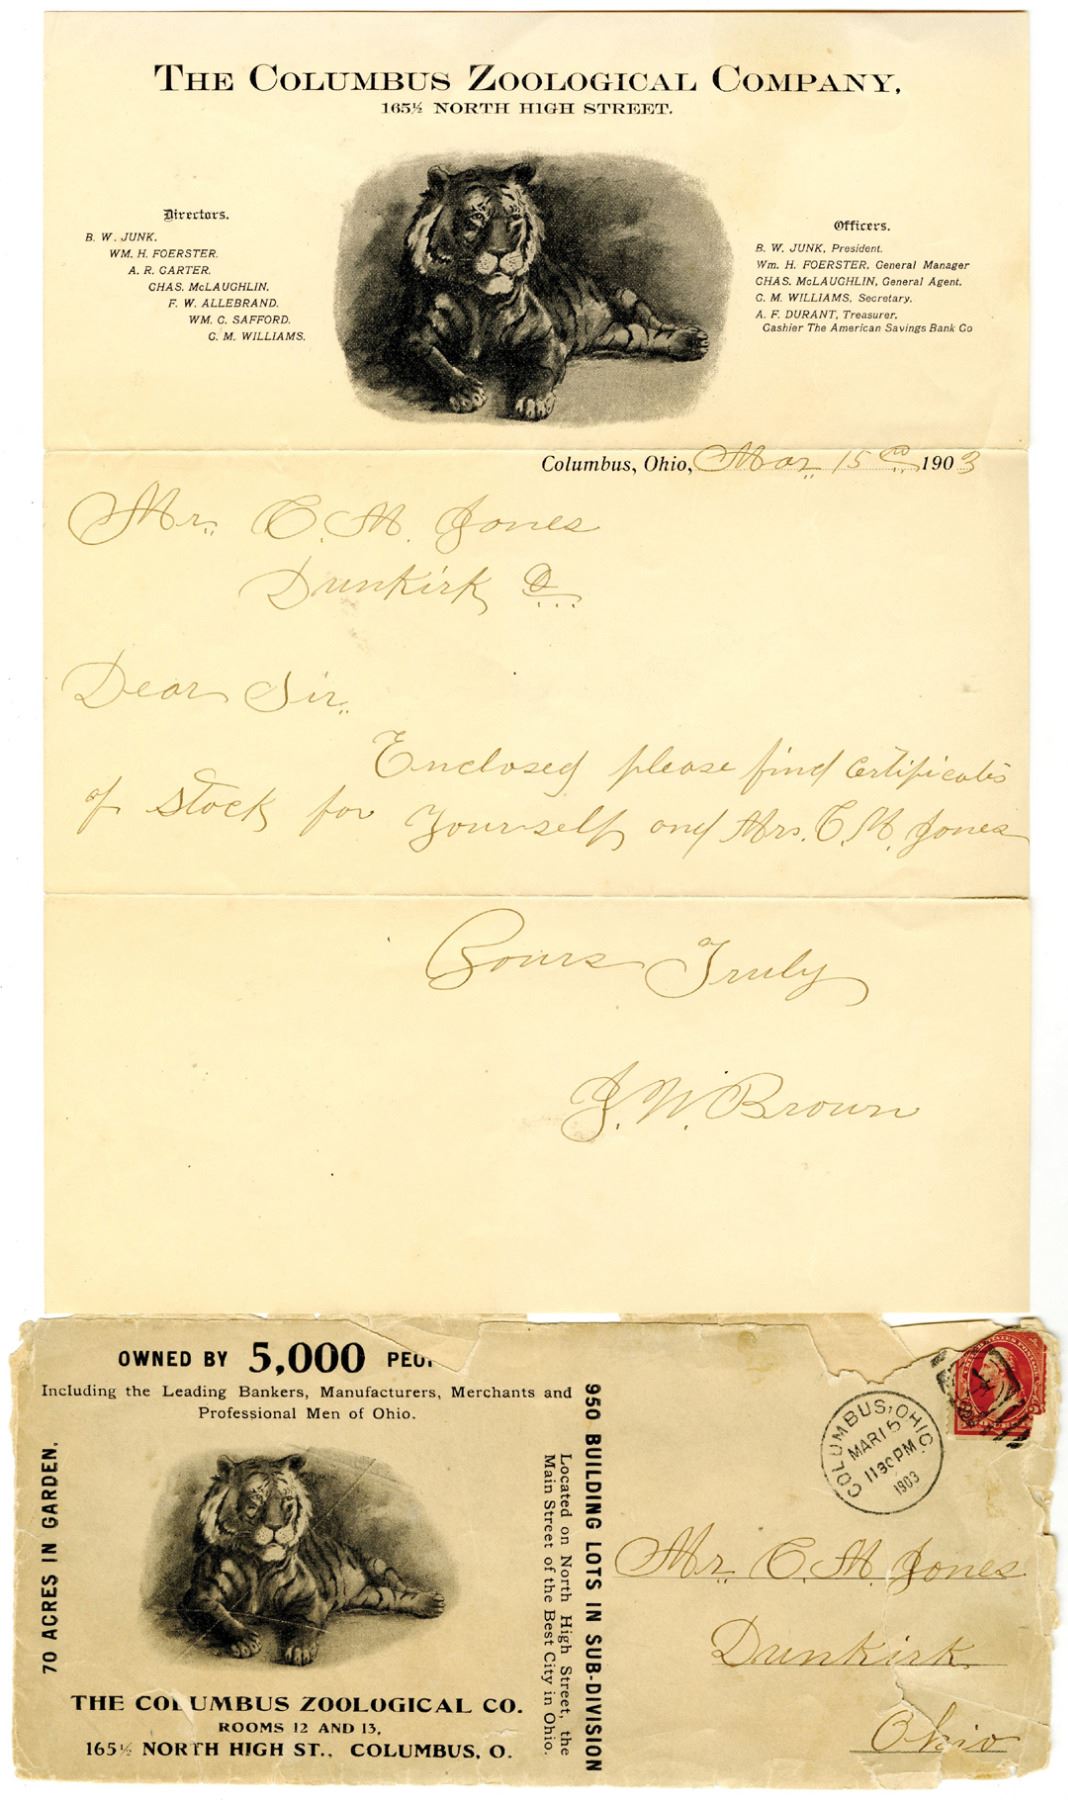 THE COLUMBUS ZOOLOGICAL COMPANY,
165½ NORTH HIGH STREET.
Directors.
B. W. JUNK.
WM. H. FOERSTER.
A. R. CARTER.
CHAS. McLAUGHLIN.
F. W. ALLEBRAND.
WM. C. SAFFORD.
C. M. WILLIAMS.
Officers.
B. W. JUNK, President.
Wm. H. FOERSTER, General Manager
CHAS. McLAUGHLIN, General Agent.
C. M. WILLIAMS, Secretary.
A. F. DURANT, Treasurer.
Cashier The American Savings Bank Co
Columbus, Ohio, Mar 15 1903
Mr. C. M. Jones
Dunkirk O
Dear Sir
Enclosed please find certificates
of stock for Yourself and Mrs. C. M. Jones
Yours Truly
J. W. Brown
OWNED BY 5,000
Including the Leading Bankers, Manufacturers, Merchants and
Professional Men of Ohio.
70 ACRES IN GARDEN.
Located on North High Street, the
Main Street of the Best City in Ohio.
950 BUILDING LOTS IN SUB-DIVISION
THE COLUMBUS ZOOLOGICAL CO.
ROOMS 12 AND 13,
165½ NORTH HIGH ST., COLUMBUS, O.
COLUMBUS, OHIO
MAR 15
1130PM
1903
Mr. C. M. Jones
Dunkirk
Ohio